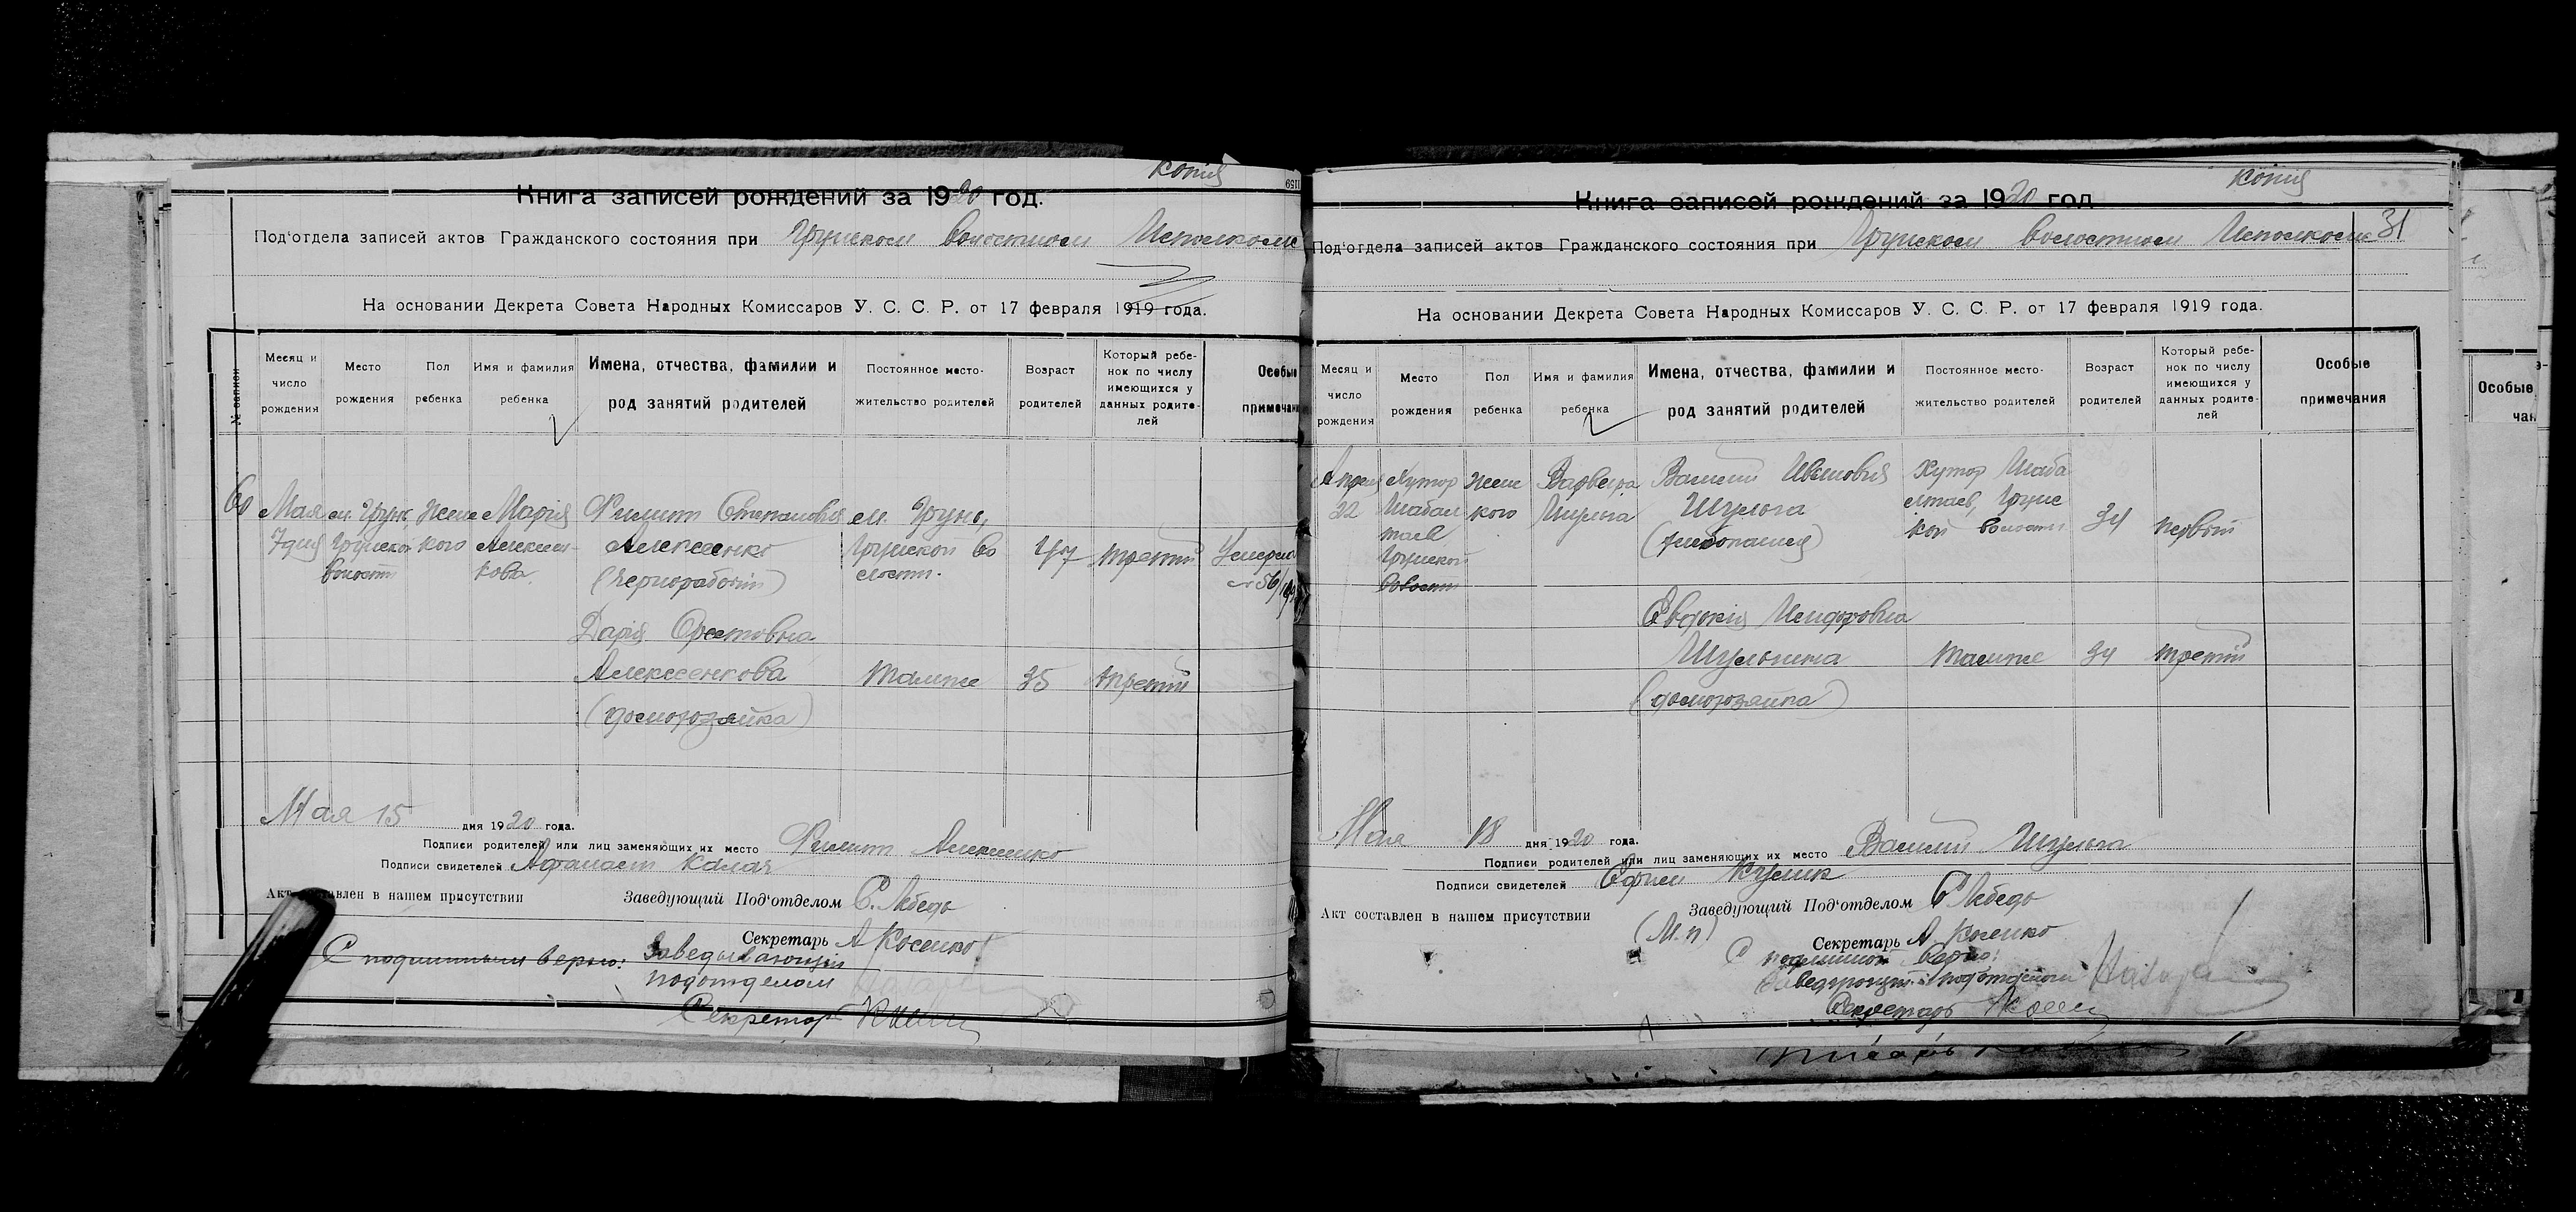 копия
Книга записей рождений за 1920 год.
Под'отдела записей актов Гражданского состояния при Грунском волостном Исполкоме
На основании Декрета Совета Народных Комиссаров У. С. С. Р. от 17 февраля 1919 года.
№ записи
Месяц и число рождения
Место рождения
Пол ребенка
Имя и фамилия ребенка
Имена, отчества, фамилии и род занятий родителей
Постоянное место-жительство родителей
Возраст родителей
Который ребе-нок по числу имеющихся у данных родите-лей
Особые примечан
60 Мая м. Грунь, Женс Марія Филипп Степанович м. Грунь,
7 дня Грунской кого Алексеен- Алексеенко Грунской во 47 третий Умерла
волости кова (чернорабочий) лости. № 56/
Дарія Орестовна
Алексеенкова также 35 третий
(домохозяйка)
Мая 15 дня 1920 года.
Подписи родителей или лиц заменяющих их место Филипп Алексеенко
Подписи свидетелей Афанасий Калач
Акт составлен в нашем присутствии Заведующий Под'отделом С. Лебедь
Секретарь А Косенко
С подлинным верно: Заведывающий
подотделом
Секретарь
копия
Книга записей рождений за 1920 год
Под'отдела записей актов Гражданского состояния при Грунском волостном Исполкоме 31
На основании Декрета Совета Народных Комиссаров У. С. С. Р. от 17 февраля 1919 года.
Месяц и число рождения
Место рождения
Пол ребенка
Имя и фамилия ребенка
Имена, отчества, фамилии и род занятий родителей
Постоянное место-жительство родителей
Возраст родителей
Который ребе-нок по числу имеющихся у данных родите-лей
Особые примечания
Особые
чан
Апреля Хутор женс Варвара Василий Иванович Хутор Шаба
22 Шабал кого Шульга Шульга лтаев, Грунс 34 первой
таев (хлебопашец) кой волости
Грунской
волости
Евдокія Исидоровна
Шульгина также 34 третий
(домохозяйка)
Мая 18 дня 1920 года.
Подписи родителей или лиц заменяющих их место Василий Шульга
Подписи свидетелей Ефим Кулик
Акт составлен в нашем присутствии Заведующий Под'отделом С Лебедь
(М.п) Секретарь А Косенко
С подлинном верно:
Заведующий подотделом
Секретарь